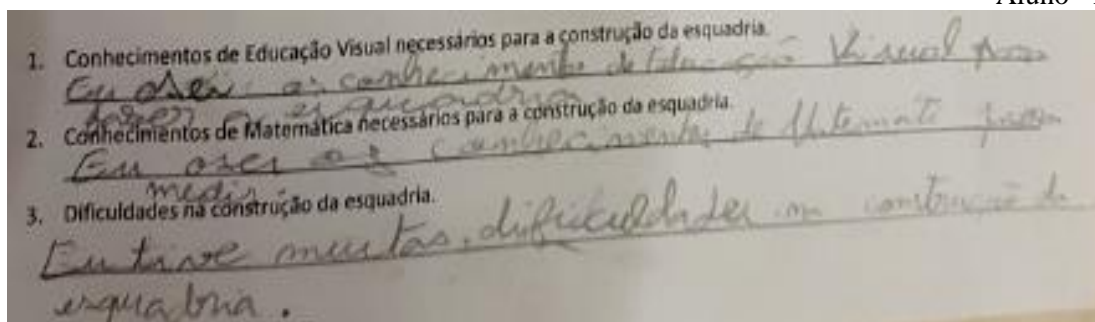 1. Conhecimentos de Educação Visual necessários para a construção da esquadria.
Eu usei os conhecimento de Educação Visual para
fazer a esquadria
2. Conhecimentos de Matemática necessários para a construção da esquadria.
Eu user os conhecimentos de Matemati para
medir
3. Dificuldades na construção da esquadria.
Eu tive muitas, dificuldades na construção da
esquabria.